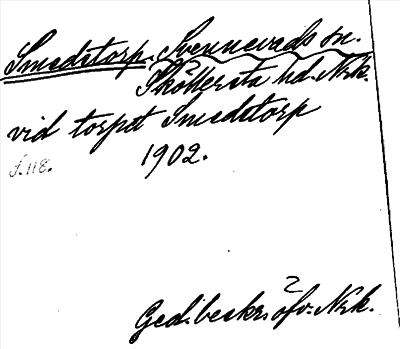 Smedstorp. Svennevads sn.
Sköllersta hd. Nrk.
vid torpet Smedstorp
1902.
S. 118.
2
Geol. beskr. öfv. Nrk.